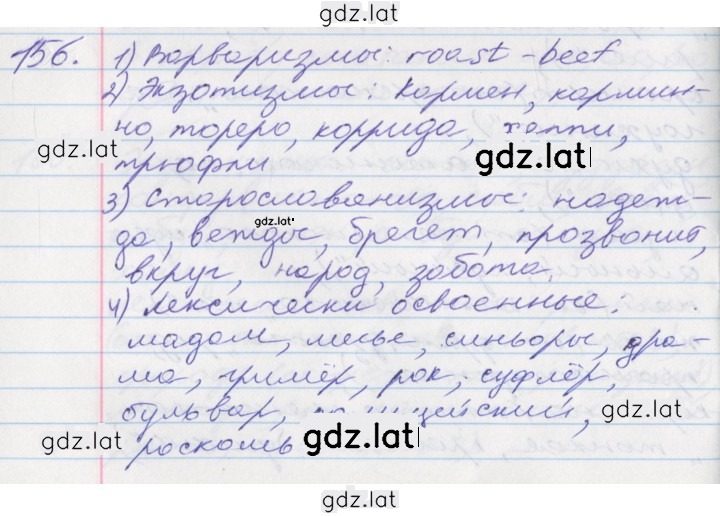 gdz.lat
156. 1) Варваризмы: roast-beef
2) Экзотизмы: Кармен, кармин-
но, тореро, коррида, хиппи,
gdz.lat
gdz.lat
трюфли
3) Старославянизмы: надеж-
gdz.lat
да, вежды, брегет, прозвонит,
вкруг, народ, забота.
4) Лексически освоенные:
мадам, месье, синьоры, дра-
ма, гримёр, рок, суфлёр,
бульвар,
gdz.lat
gdz.lat
роскошь
gdz.lat
gdz.lat